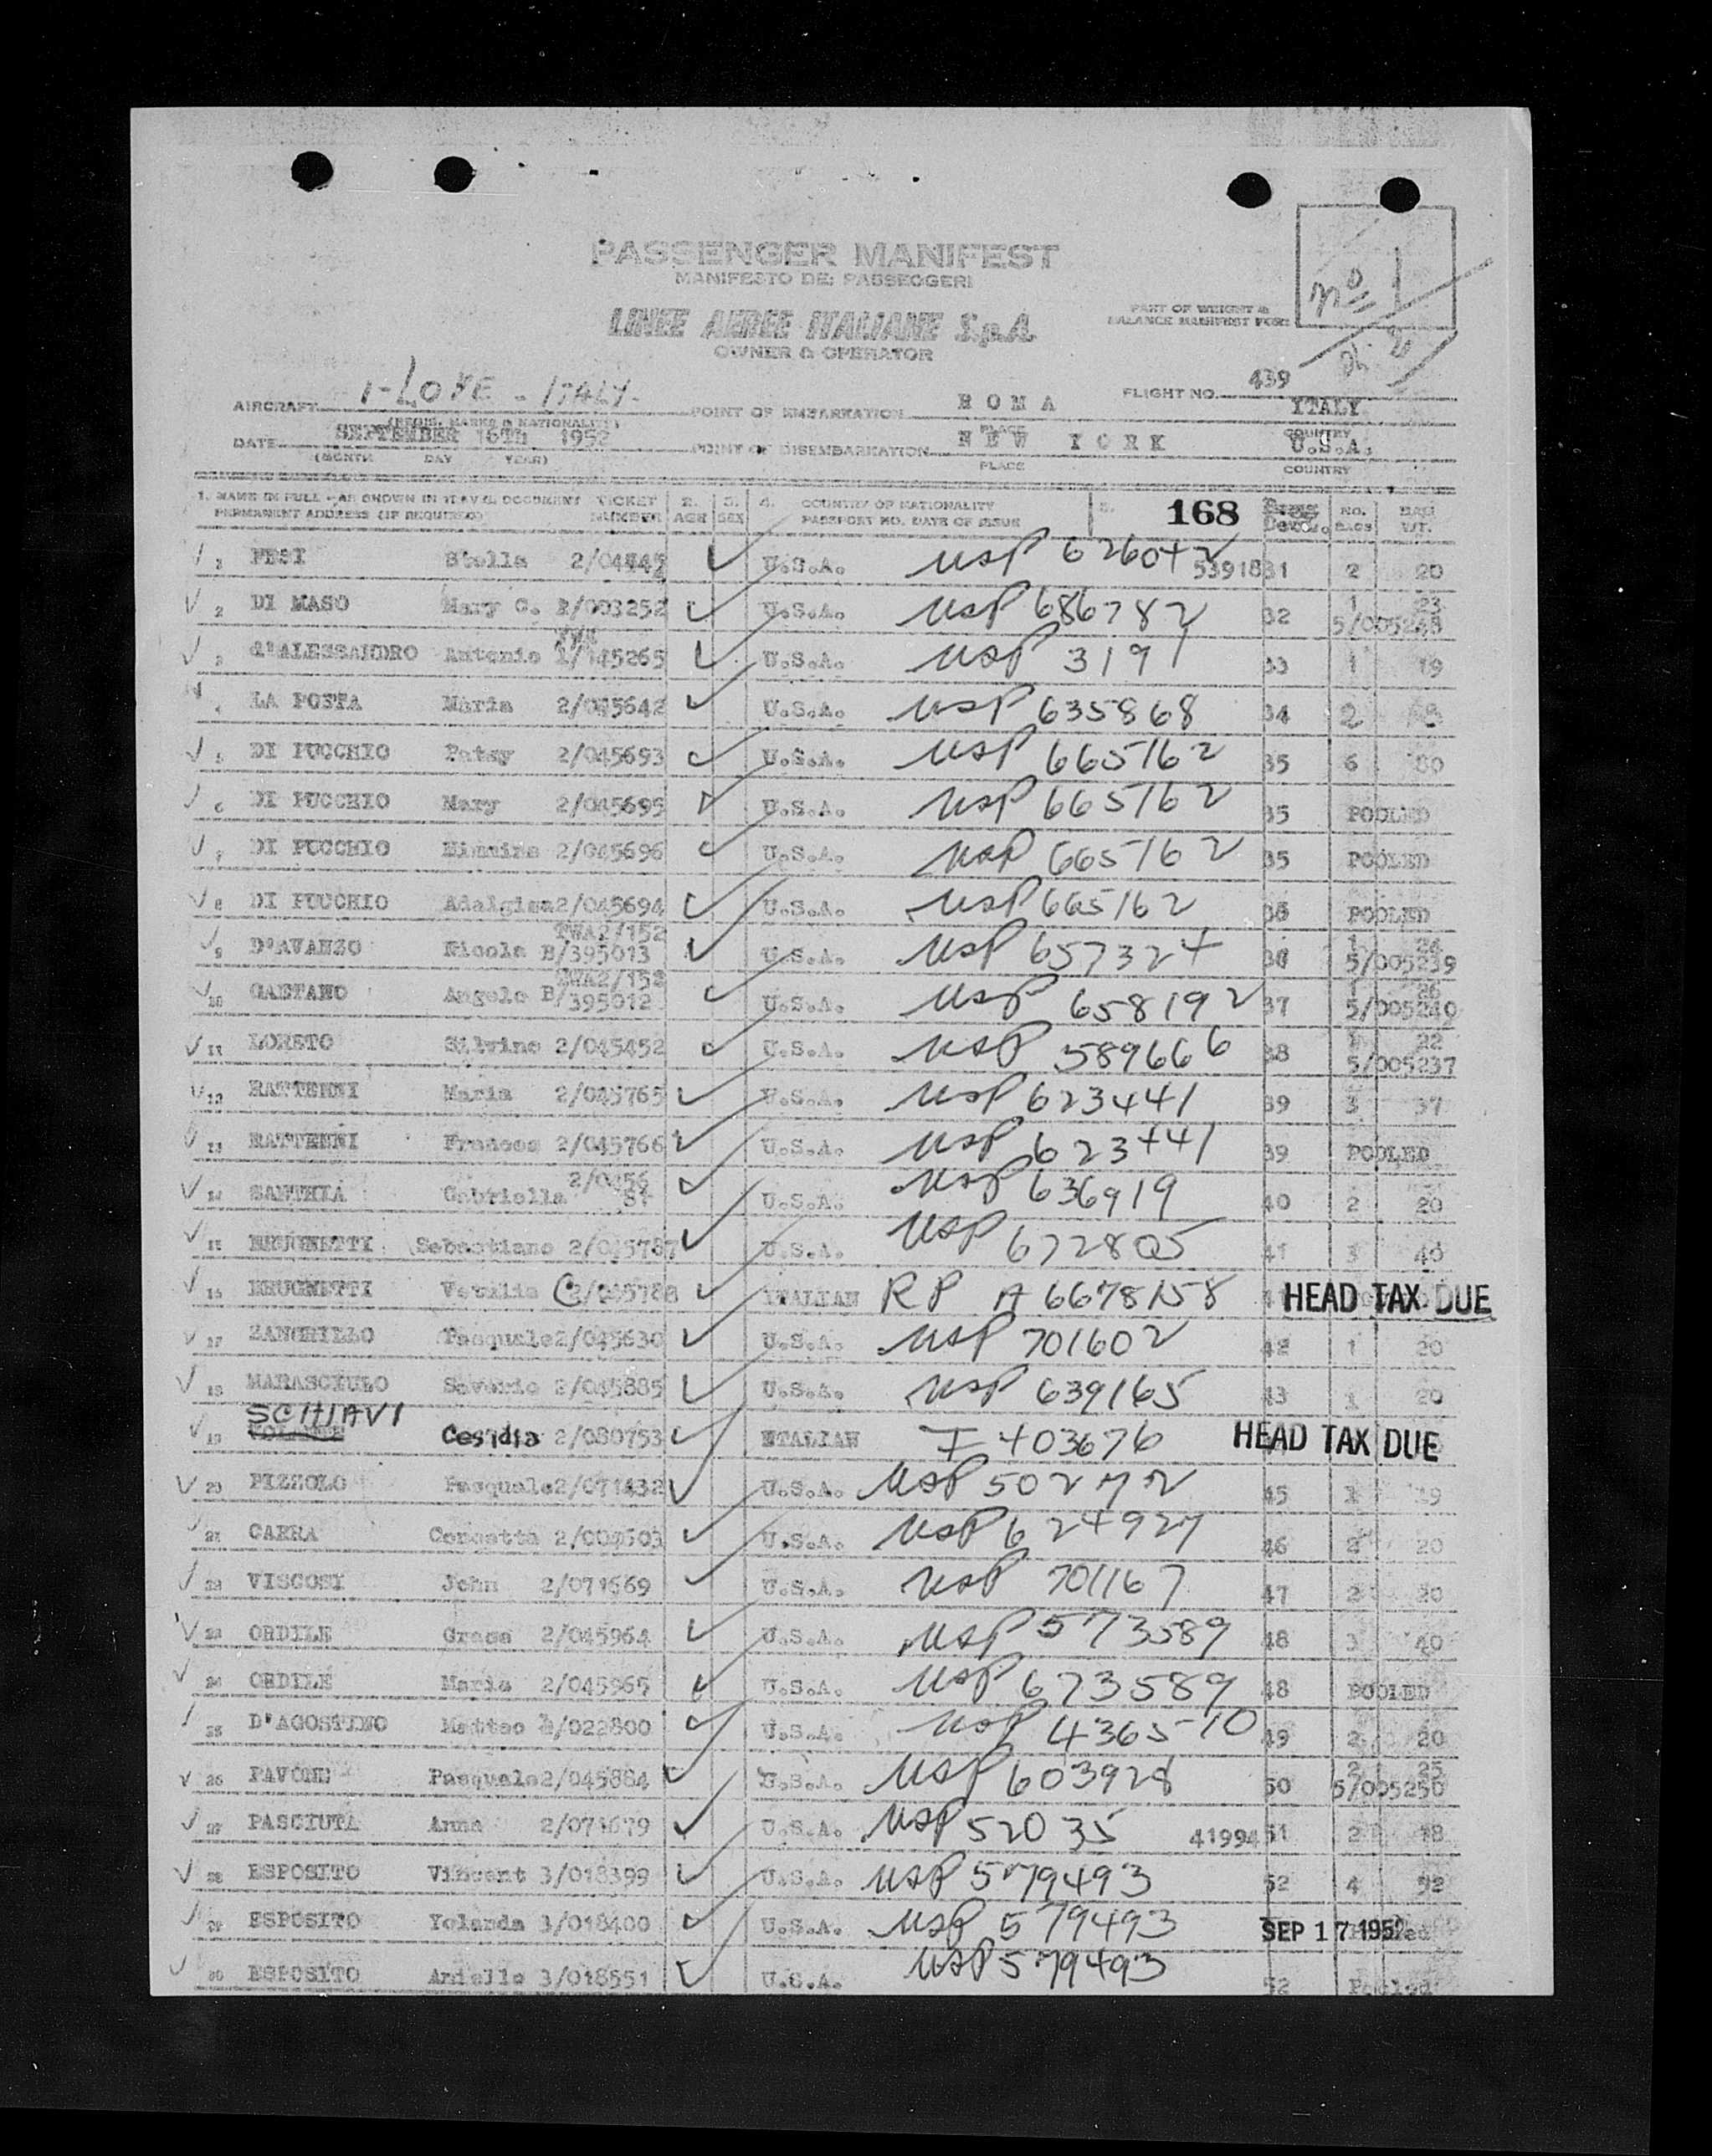 PASSENGER MANIFEST
MANIFESTO DEI PASSEGGERI
LINEE AEREE ITALIANE S.p.A.
OWNER & OPERATOR
PART OF WEIGHT &
BALANCE MANIFEST FOR:
No 1
AIRCRAFT I-LOVE - ITALY - POINT OF EMBARKATION ROMA FLIGHT NO. 439 ITALY
(REGIS. MARKS & NATIONALITY) PLACE COUNTRY
DATE SEPTEMBER 16TH 1952 POINT OF DISEMBARKATION NEW YORK U.S.A.
(MONTH DAY YEAR) PLACE COUNTRY
1. NAME IN FULL - AS SHOWN IN TRAVEL DOCUMENT TICKET 2. 3. 4. COUNTRY OF NATIONALITY 5. 168 NO. BAG
PERMANENT ADDRESS (IF REQUIRED) NUMBER AGE SEX PASSPORT NO. DATE OF ISSUE BAGS WT.
1 PESI Stella U.S.A. USP 626042 5391831 2 20
2 DI MASO Mary C. 2/003252 U.S.A. USP 686782 32 1 23
5/005248
3 D'ALESSANDRO Antonio 1/145265 U.S.A. USP 3191 33 1 19
4 LA POSTA Maria 2/045642 U.S.A. USP 635868 34 2
5 DI PUCCHIO Patsy 2/045693 U.S.A. USP 665162 35 6 80
6 DI PUCCHIO Mary 2/045695 U.S.A. USP 665162 35 POOLED
7 DI PUCCHIO 2/045696 U.S.A. USP 665162 35 POOLED
8 DI PUCCHIO Adalgisa 2/045694 U.S.A. USP 665162 35 POOLED
TWA2/152
9 D'AVANZO Nicola B/395013 U.S.A. USP 657324 36 1 24
5/005239
TWA2/152
10 GAETANO Angelo B/395012 U.S.A. USP 658192 37 1 26
5/005240
11 LORETO Silvino 2/045452 U.S.A. USP 589666 38 1 22
5/005237
12 RATTENNI Maria 2/045765 U.S.A. USP 623441 39 3 37
13 RATTENNI Frances 2/045766 U.S.A. USP 623441 39 POOLED
2/0456
14 SANTHIA Gabriella 51 U.S.A. USP 636919 40 2 20
15 BRUGNETTI Sebastiano 2/045787 U.S.A. USP 672805 41 3 40
16 BRUGNETTI Vetulia 2/045788 ITALIAN RP A 6678158 HEAD TAX DUE
17 ZANGRILLO Pasquale 2/045630 U.S.A. USP 701602 42 1 20
18 MARASCIULO Saverio 2/045885 U.S.A. USP 639165 43 1 20
SCHIAVI
19 Cesidia 2/080753 ITALIAN I 403676 HEAD TAX DUE
20 PIZZOLO Pasquale 2/071432 U.S.A. USP 50272 45 1 19
21 CARRA Concetta U.S.A. USP 624927 46 2 20
22 VISCOSI John 2/071669 U.S.A. USP 701167 47 2 20
23 ORDILE Grace 2/045964 U.S.A. USP 573589 48 3 40
24 ORDILE Maria 2/045965 U.S.A. USP 673589 48 POOLED
25 D'AGOSTINO Matteo 2/022800 U.S.A. USP 436510 49 2 20
26 PAVONE Pasquale 2/045884 U.S.A. USP 603928 50 2 25
5/005250
27 PASCIUTA Anna 2/071679 U.S.A. USP 52035 4199451 2 18
28 ESPOSITO Vincent 3/018399 U.S.A. USP 579493 52 4 52
29 ESPOSITO Yolanda 3/018400 U.S.A. USP 579493 SEP 17 1952
30 ESPOSITO Aniello 3/018551 U.S.A. USP 579493 52 Pooled